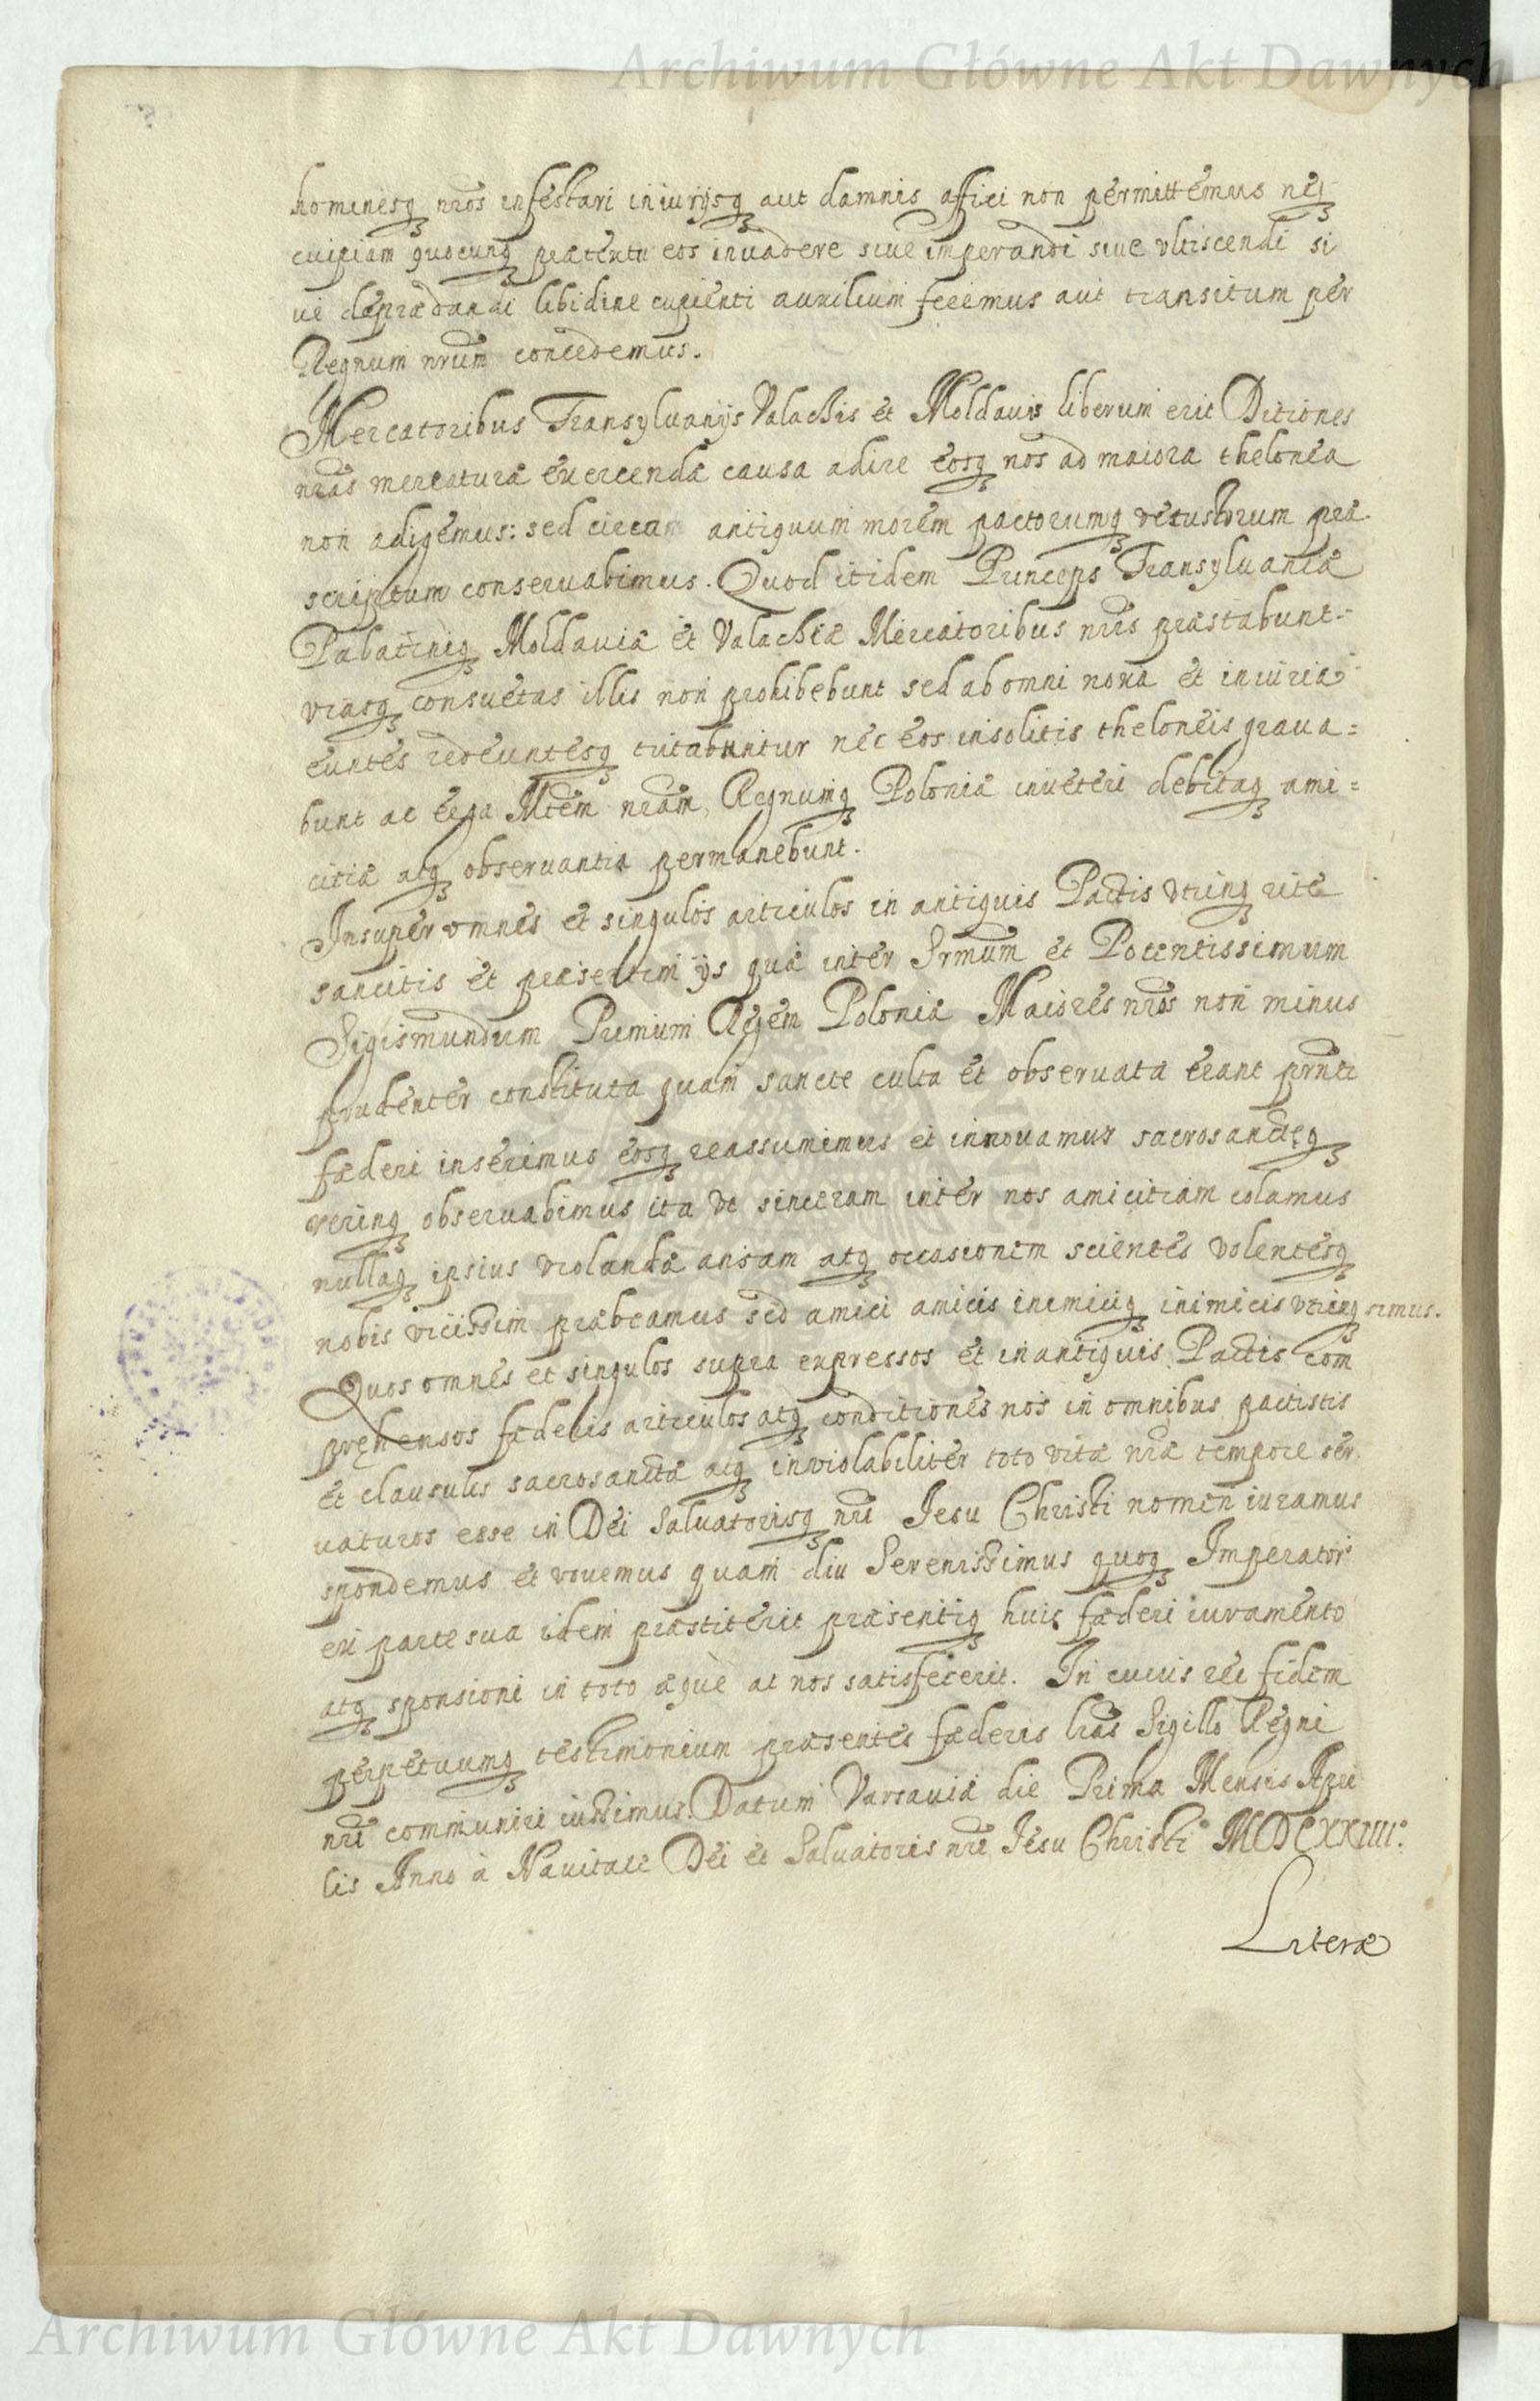 Archiwum Główne Akt Dawnych
hominesq nros infestari iniurijsq aut damnis affici non permittemus neq
cuipiam quocunq prætextu eos inuadere siue imperandi siue vltiscendi si
ue deprædandi libidine cupienti auxilium feremus aut transitum per
Regnum nrum concedemus.
Mercatoribus Transyluanijs Valachis et Moldauis liberum erit Ditiones
nras mercaturæ exercendæ causa adire eosq nos ad maiora thelonea
non adigemus: sed circa antiquum morem pactorumq vetustorum præ
scriptum conseruabimus. Quod itidem Princeps Transyluaniæ
Palatiniq Moldauiæ et Valachiæ Mercatoribus nris præstabunt
viasq consuetas illis non prohibebunt sed ab omni noxa et iniuria
euntes redeuntesq tutabuntur nec eos insolitis theloneis graua=
bunt ac erga Mtem nram, Regnumq Poloniæ in veteri debitaq ami=
citia atq obseruantia permanebunt.
Insuper omnes et singulos articulos in antiquis Pactis vtrinq rite
sancitis et præsertim ijs quæ inter Srmum et Potentissimum
Sigismundum Primum Regem Poloniæ Maiores nros non minus
prudenter constituta quam sancte culta et obseruata erant prnti
fæderi inserimus eosq reassumimus et innouamus sacrosancteq
vtrinq obseruabimus ita vt sinceram inter nos amicitiam colamus
nullaq ipsius violandæ ansam atq occasionem scientes volentesq
nobis vicissim præbeamus sed amici amicis inimiciq inimicis vtrinq simus.
Quos omnes et singulos supra expressos et in antiquis Pactis com
prehensos fæderis articulos atq conditiones nos in omnibus pactistis
et clausulis sacrosancte atq inviolabiliter toto vitæ nræ tempore ser
uaturos esse in Dei Saluatorisq nri Jesu Christi nomen iuramus
spondemus et vouemus quam diu Serenissimus quoq Imperator
ex parte sua idem præstiterit præsentiq huic fæderi iuramento
atq sponsioni in toto æquè ac nos satisfecerit. In cuius rei fidem
perpetuumq testimonium præsentes fæderis lras Sigillo Regni
nri communiri iussimus. Datum Varsauiæ die Prima Mensis Apri
lis Anno à Nauitate Dei et Saluatoris nri Jesu Christi MDCXXIIII.
Literæ
Archiwum Główne Akt Dawnych